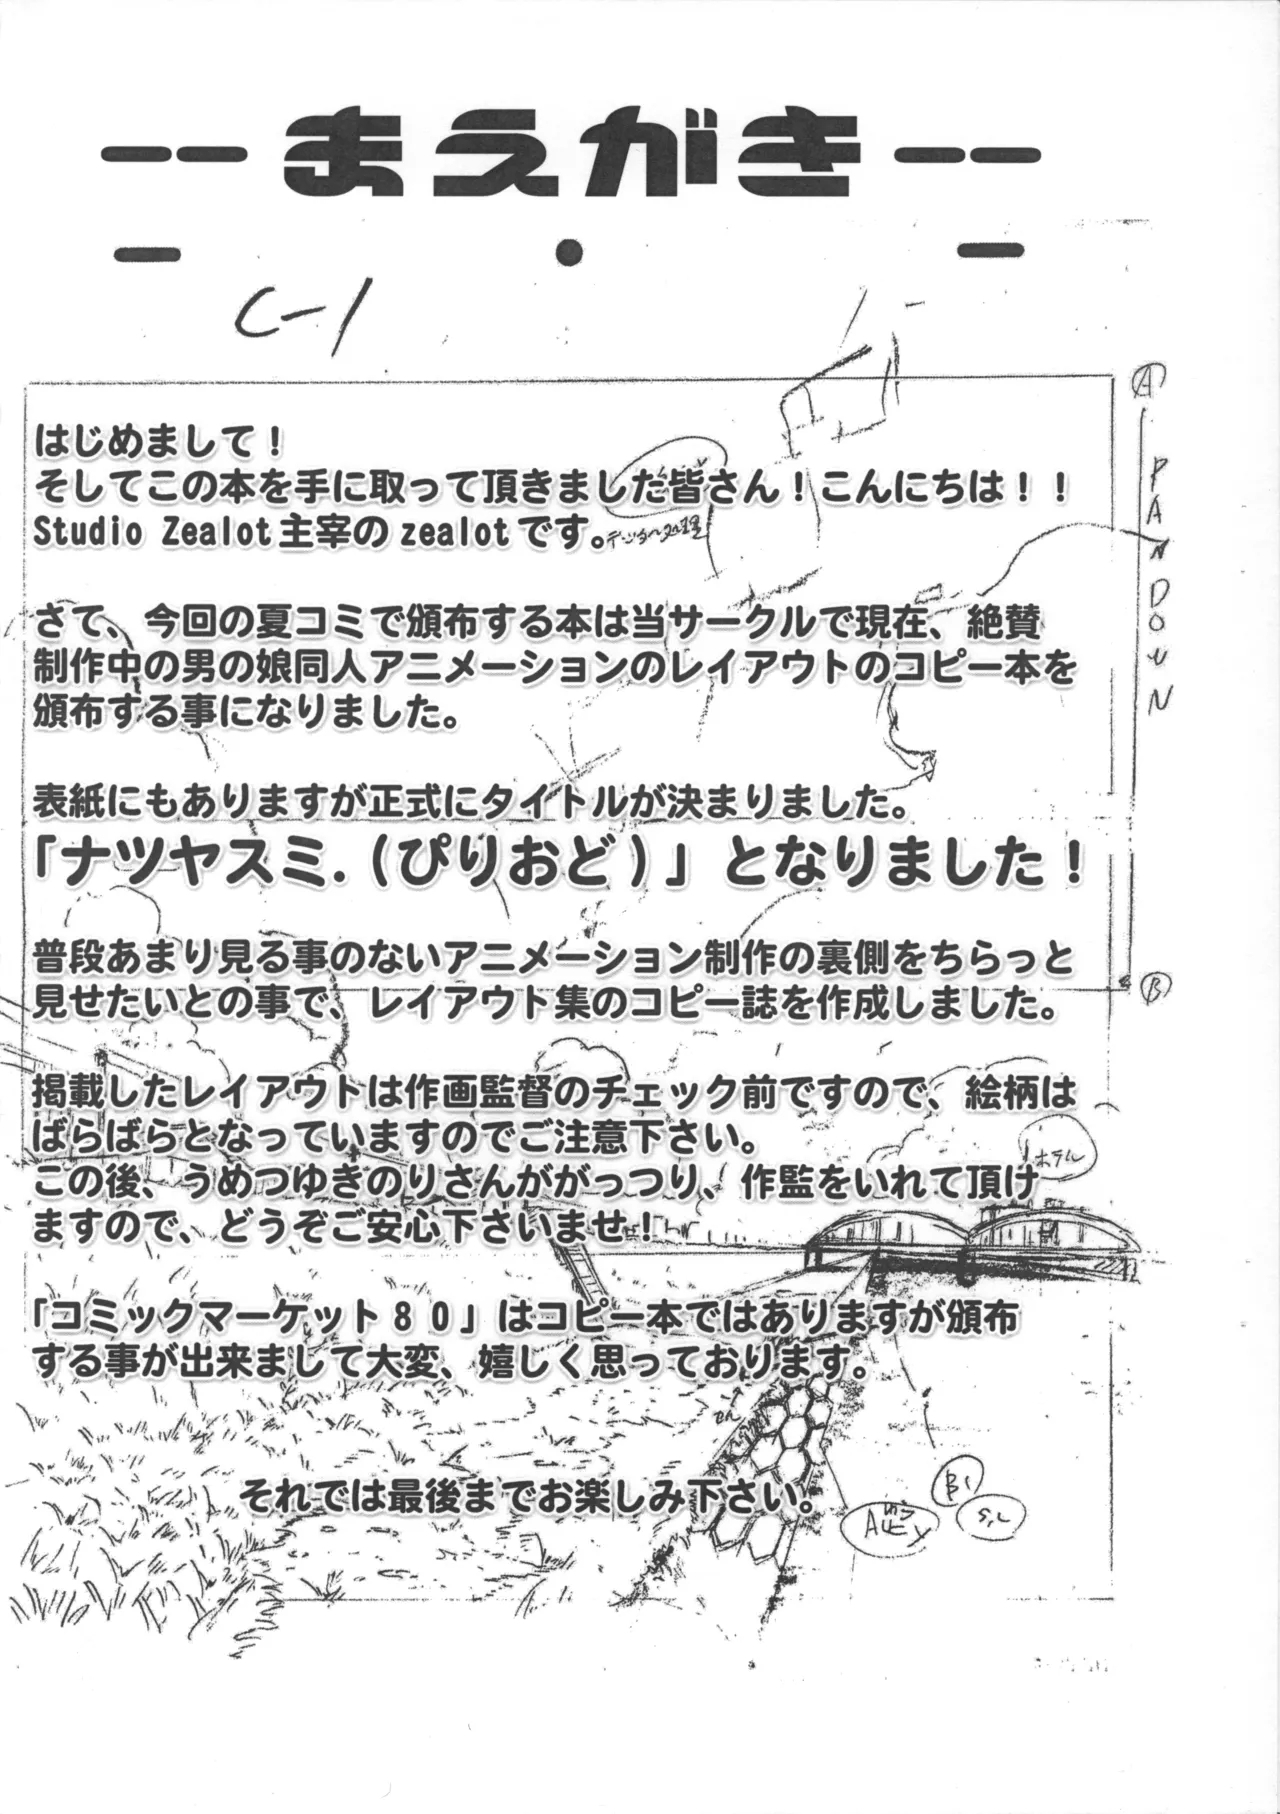 --まえがき--
C-1
はじめまして！
そしてこの本を手に取って頂きました皆さん！こんにちは！！
Studio Zealot主宰のzealotです。
さて、今回の夏コミで頒布する本は当サークルで現在、絶賛
制作中の男の娘同人アニメーションのレイアウトのコピー本を
頒布する事になりました。
表紙にもありますが正式にタイトルが決まりました。
「ナツヤスミ.（ぴりおど）」となりました！
普段あまり見る事のないアニメーション制作の裏側をちらっと
見せたいとの事で、レイアウト集のコピー誌を作成しました。
掲載したレイアウトは作画監督のチェック前ですので、絵柄は
ばらばらとなっていますのでご注意下さい。
この後、うめつゆきのりさんががっつり、作監をいれて頂け
ますので、どうぞご安心下さいませ！
「コミックマーケット８０」はコピー本ではありますが頒布
する事が出来まして大変、嬉しく思っております。
それでは最後までお楽しみ下さい。
A
PANDOWN
B
ホテル
B1